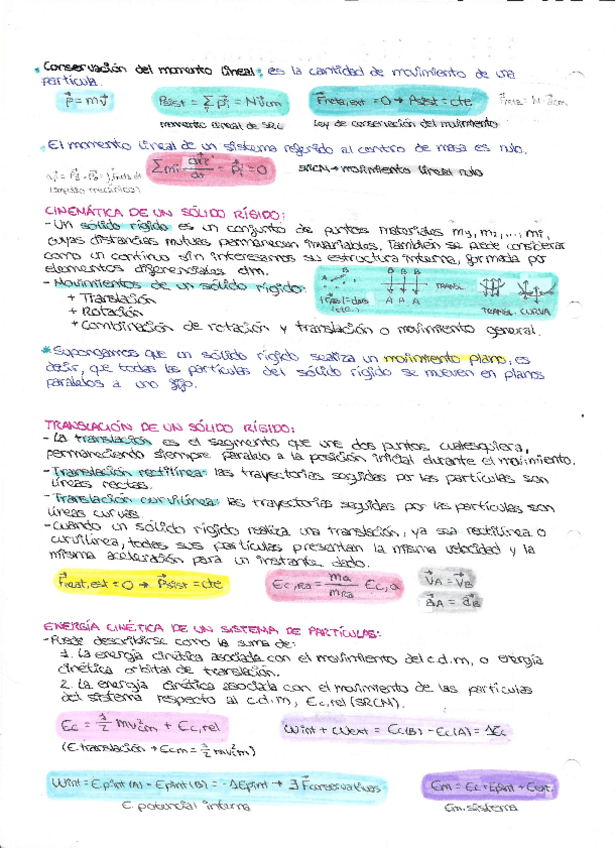 * Conservación del momento lineal: es la cantidad de movimiento de una
partícula.
p⃗ = mv⃗   P⃗sist = Σ p⃗i = Nv⃗cm   F⃗neta,ext = 0 → P⃗sist = cte
momento lineal de SRC   Ley de conservación del movimiento
* El momento lineal de un sistema referido al centro de masa es nulo.
= p⃗i = 0   SRCM → movimiento lineal nulo
CINEMÁTICA DE UN SÓLIDO RÍGIDO:
- Un sólido rígido es un conjunto de puntos materiales m1, m2, ... mi,
cuyas distancias mutuas permanecen invariables. También se puede considerar
como un continuo sin interesarnos su estructura interna, formada por
elementos diferenciales dm.
- Movimientos de un sólido rígido:
+ Translación
+ Rotación
+ Combinación de rotación y translación o movimiento general.
B B B B
A A A A
TRANSL
TRANSL. CURVA
* Supongamos que un sólido rígido realiza un movimiento plano, es
decir, que todas las partículas del sólido rígido se mueven en planos
paralelos a uno fijo.
TRANSLACIÓN DE UN SÓLIDO RÍGIDO:
- La translación es el segmento que une dos puntos cualesquiera,
permaneciendo siempre paralelo a la posición inicial durante el movimiento.
- Translación rectilínea: las trayectorias seguidas por las partículas son
líneas rectas.
- Translación curvilínea: las trayectorias seguidas por las partículas son
líneas curvas.
- Cuando un sólido rígido realiza una translación, ya sea rectilínea o
curvilínea, todas sus partículas presentan la misma velocidad y la
misma aceleración para un instante dado.
F⃗neat,ext = 0 → P⃗sist = cte   v⃗A = v⃗B
a⃗A = a⃗B
ENERGÍA CINÉTICA DE UN SISTEMA DE PARTÍCULAS:
- Puede describirse como la suma de:
1. La energía cinética asociada con el movimiento del c.d.m, o energía
cinética orbital de translación.
2. La energía cinética asociada con el movimiento de las partículas
del sistema respecto al c.d.m, Ec,rel (SRCM).
Ec = 1/2 mv²cm + Ec,rel   Wint + Wext = Ec(B) - Ec(A) = ΔEc
(E. translación → Ecm = 1/2 mv²cm)
Wint = Epint(A) - Epint(B) = -ΔEpint → ∃ F⃗conservativas   Em = Ec + Epint + Eext
E. potencial interna   Em. sistema